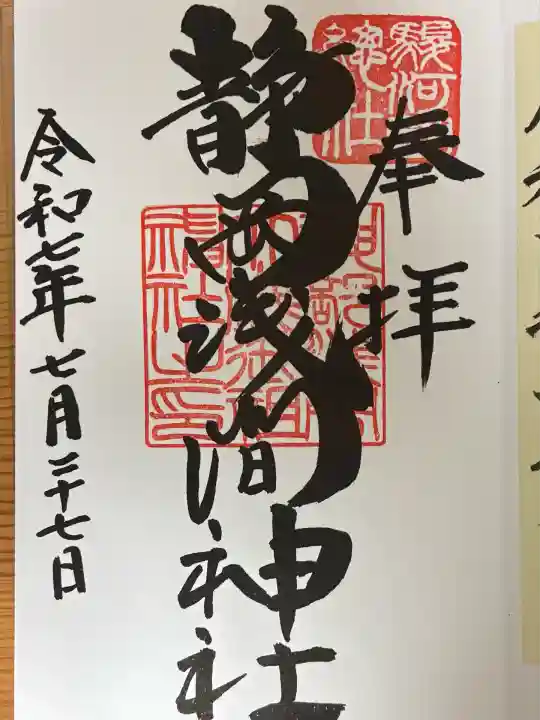 奉拝
駿河
総社
静岡浅間神社
令和七年七月二十七日